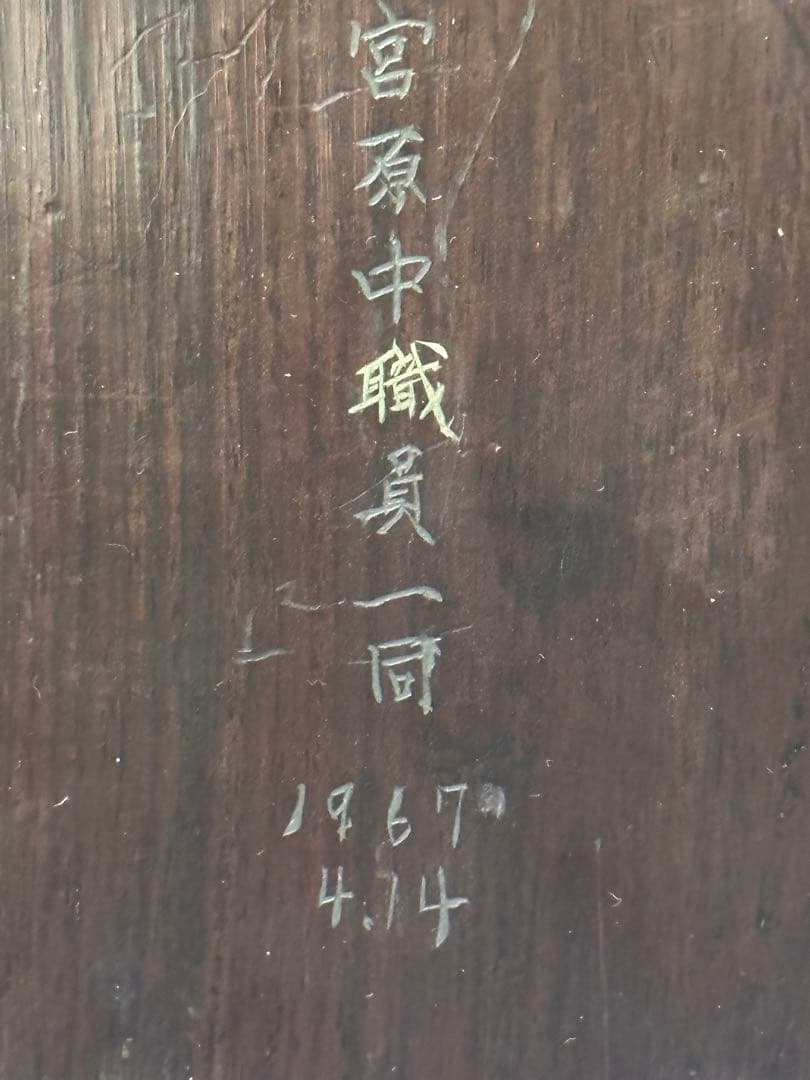 宮原中職員一同
1967
4.14